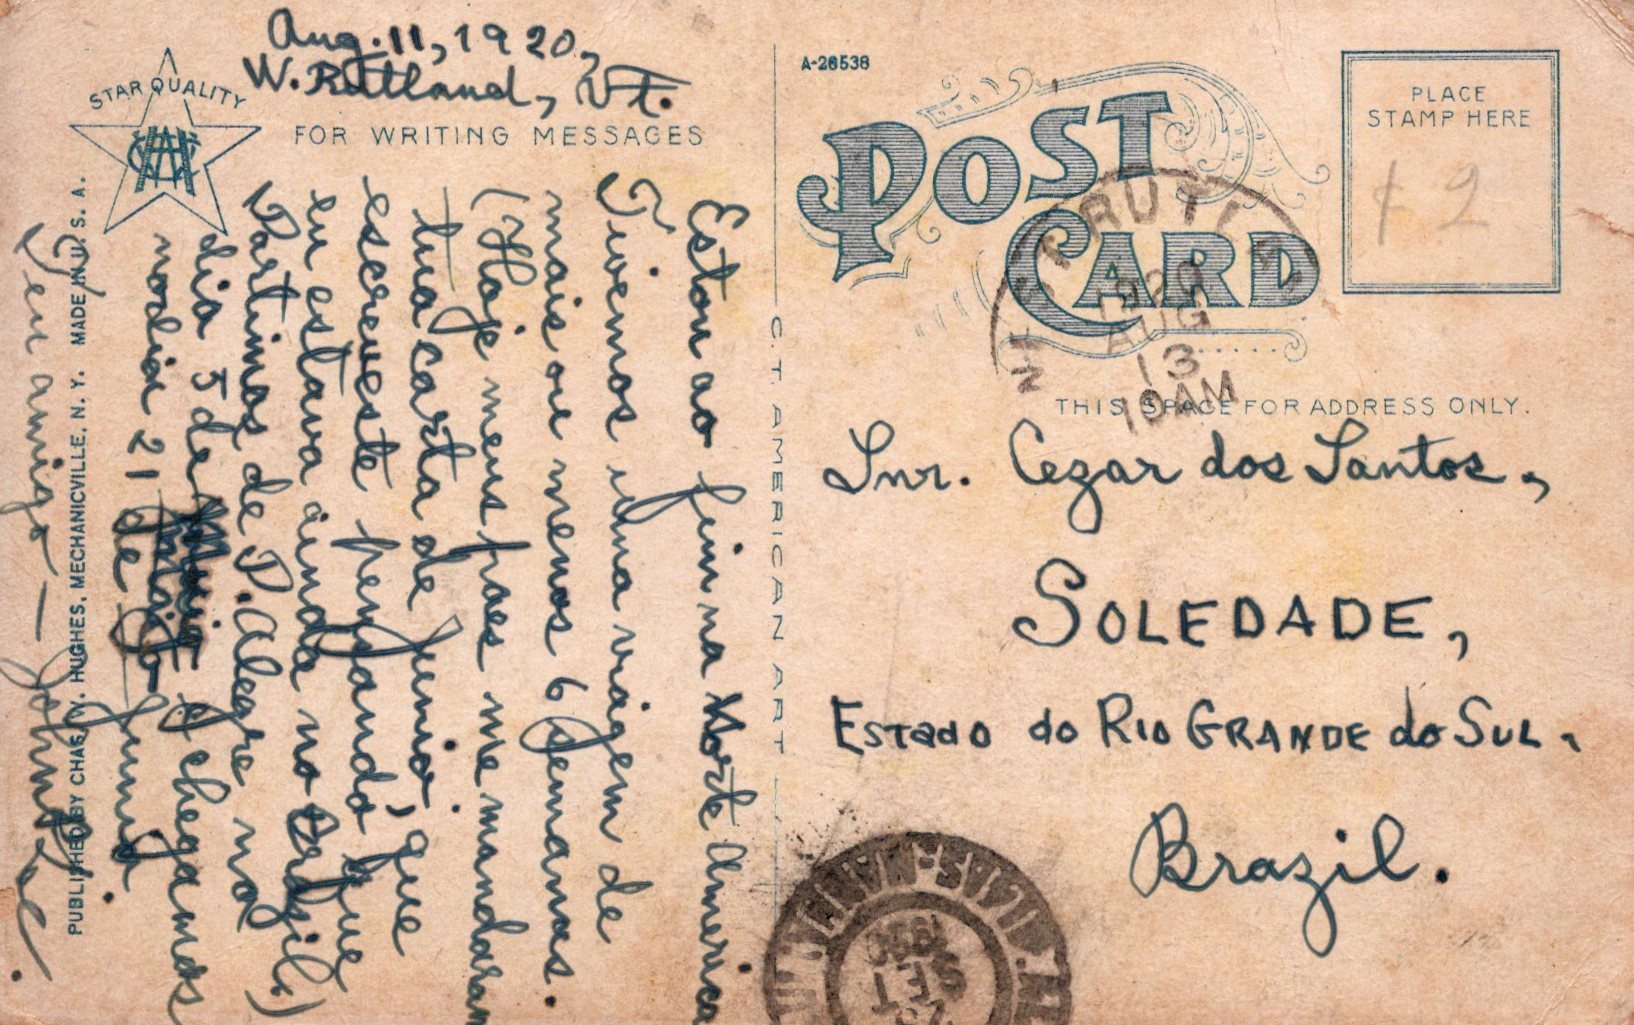 Aug. 11, 1920,
W. Rutland, Vt.
STAR QUALITY
FOR WRITING MESSAGES
Estou ao fim na Norte America.
Tivemos uma viagem de
mais ou menos 6 semanas.
(Hoje meus paes me mandaram
tua carta de junio, que
escreveste pensando que
eu estava ainda no Brazil.)
Partimos de P. Alegre no
dia 5 de e chegamos
no dia 21 de junio.
Teu amigo —
PUBLISHED BY CHAS. W. HUGHES, MECHANICVILLE, N. Y. MADE IN U. S. A.
C. T. AMERICAN ART
A-28538
POST
CARD
PLACE
STAMP HERE
¢ 2
1920
AUG
13
10AM
THIS SPACE FOR ADDRESS ONLY.
Snr. Cezar dos Santos,
SOLEDADE,
ESTADO do RIO GRANDE do SUL.
Brazil.
SET